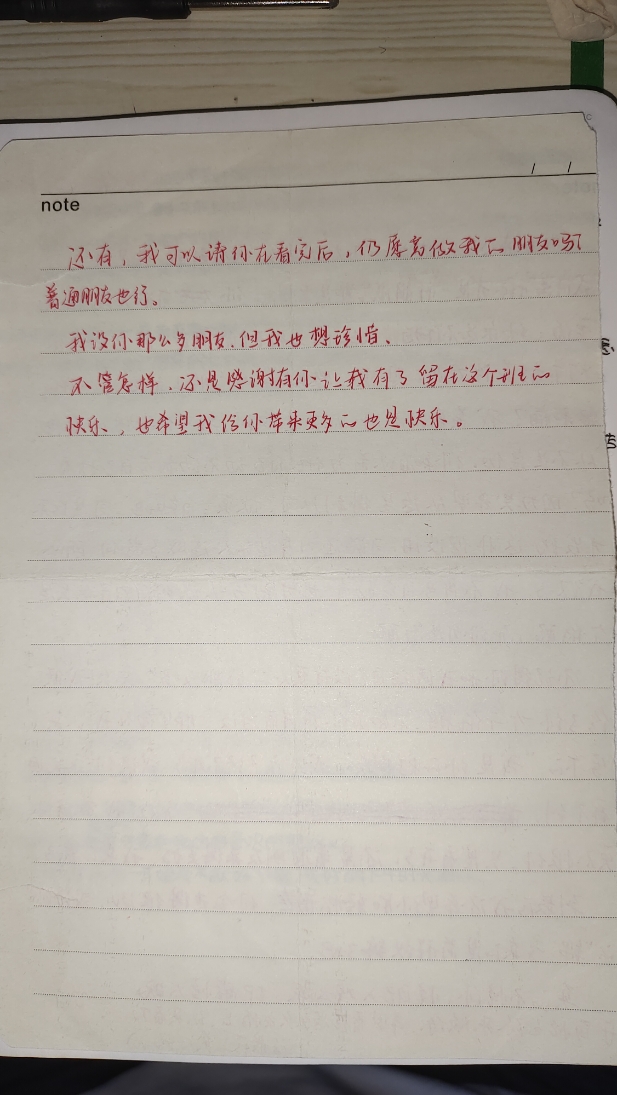 / /
note
还有，我可以请你在看完后，仍愿意做我的朋友吗？
普通朋友也行。
我没你那么多朋友，但我也想珍惜、
不管怎样，还是感谢有你让我有了留在这个班的
快乐，也希望我给你带来更多的也是快乐。